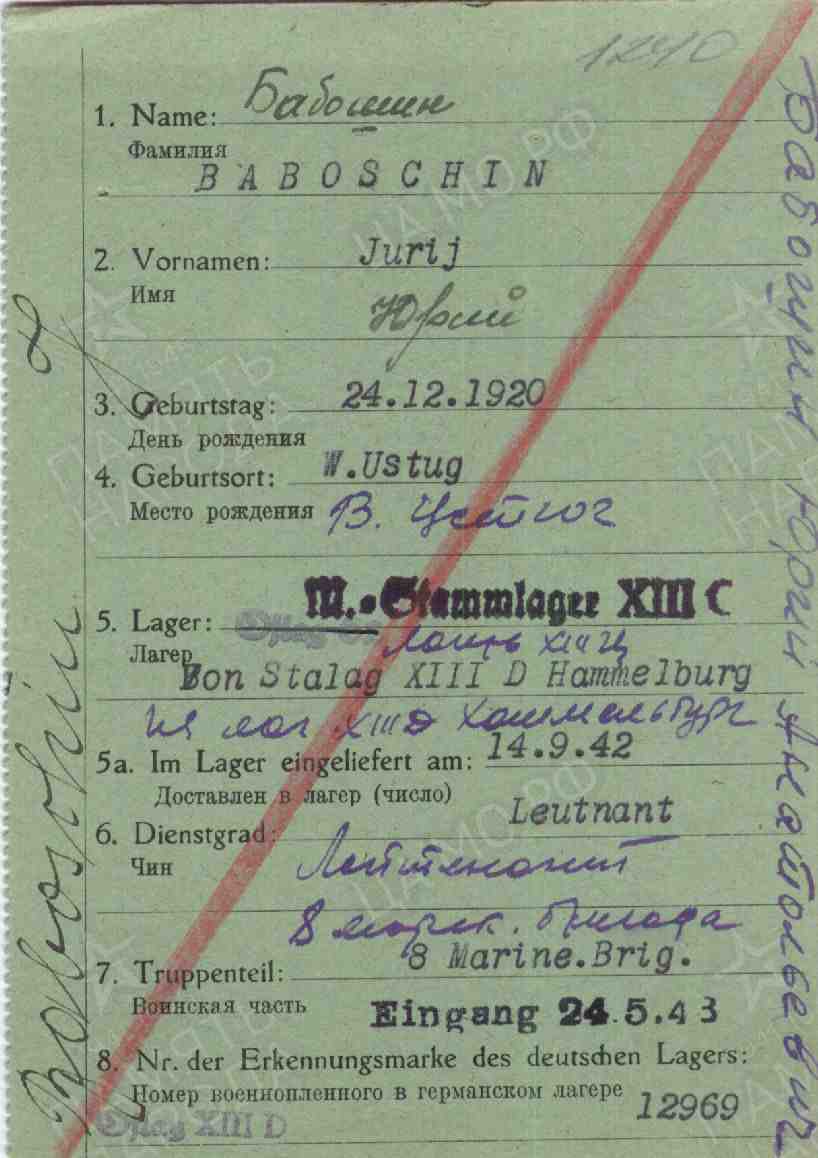 1240
1. Name: Бабошин
Фамилия
BABOSCHIN
2. Vornamen: Jurij
Имя
Юрий
3. Geburtstag: 24.12.1920
День рождения
4. Geburtsort: W.Ustug
Место рождения В. Устюг
M.-Stammlager XIII C
5. Lager: Oflag
Лагерь XIII Ц
Von Stalag XIII D Hammelburg
из лаг XIII D Хаммельбург
5a. Im Lager eingeliefert am: 14.9.42
Доставлен в лагерь (число)
Leutnant
6. Dienstgrad:
Чин Лейтенант
8 морск. бригада
7. Truppenteil: 8 Marine.Brig.
Воинская часть Eingang 24.5.43
8. Nr. der Erkennungsmarke des deutschen Lagers:
Номер военнопленного в германском лагере
12969
Oflag XIII D
Baboschin
Бабошин Юрий Анатольевич
ПАМЯТЬ НАРОДА
ЦА МО РФ